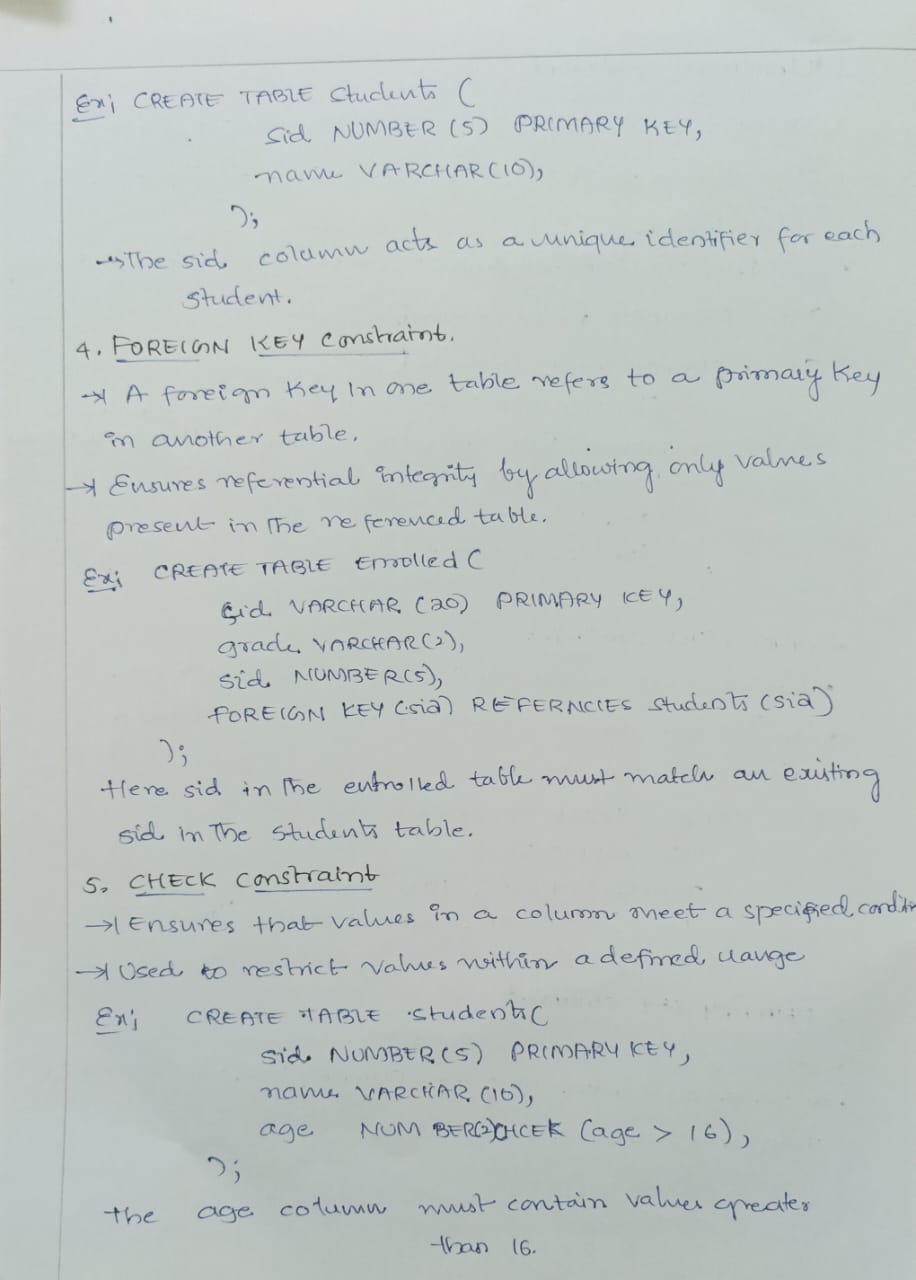 Ex; CREATE TABLE Students (
sid NUMBER (5) PRIMARY KEY,
name VARCHAR(10),
);
→ The sid column acts as a unique identifier for each
student.
4. FOREIGN KEY Constraint.
→ A foreign key in one table refers to a primary key
in another table.
→ Ensures referential integrity by allowing only values
present in the referenced table.
Ex; CREATE TABLE Enrolled (
sid VARCHAR (20) PRIMARY KEY,
grade VARCHAR(2),
sid NUMBER(5),
FOREIGN KEY (sid) REFERNCIES Students (sid)
);
Here sid in the entrolled table must match an existing
sid in the students table.
5. CHECK Constraint
→ Ensures that values in a column meet a specified
→ Used to restrict values within a defined range
Ex; CREATE TABLE students(
sid NUMBER(5) PRIMARY KEY,
name VARCHAR (10),
age NUMBER(2) CHCEK (age > 16),
);
the age column must contain values greater
than 16.